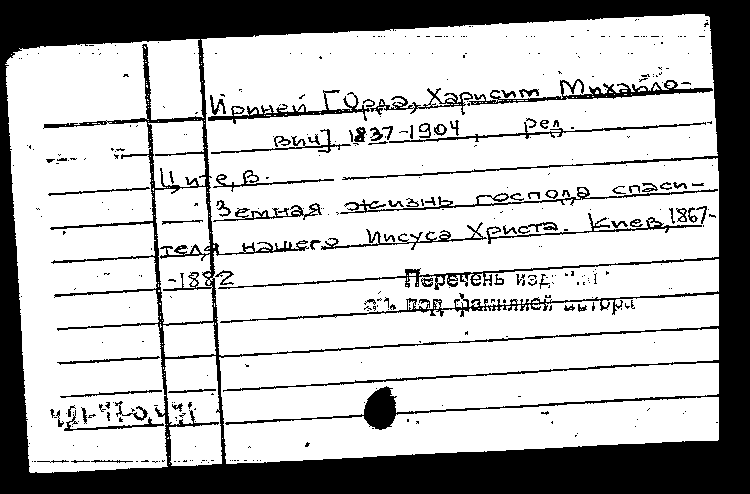 Ириней [Орда, Харисим Михайло-
вич], 1837-1904, ред.
Ците, В.
Земная жизнь господа спаси-
теля нашего Иисуса Христа. Киев, 1867-
-1882
Перечень изд.
см. под фамилией автора